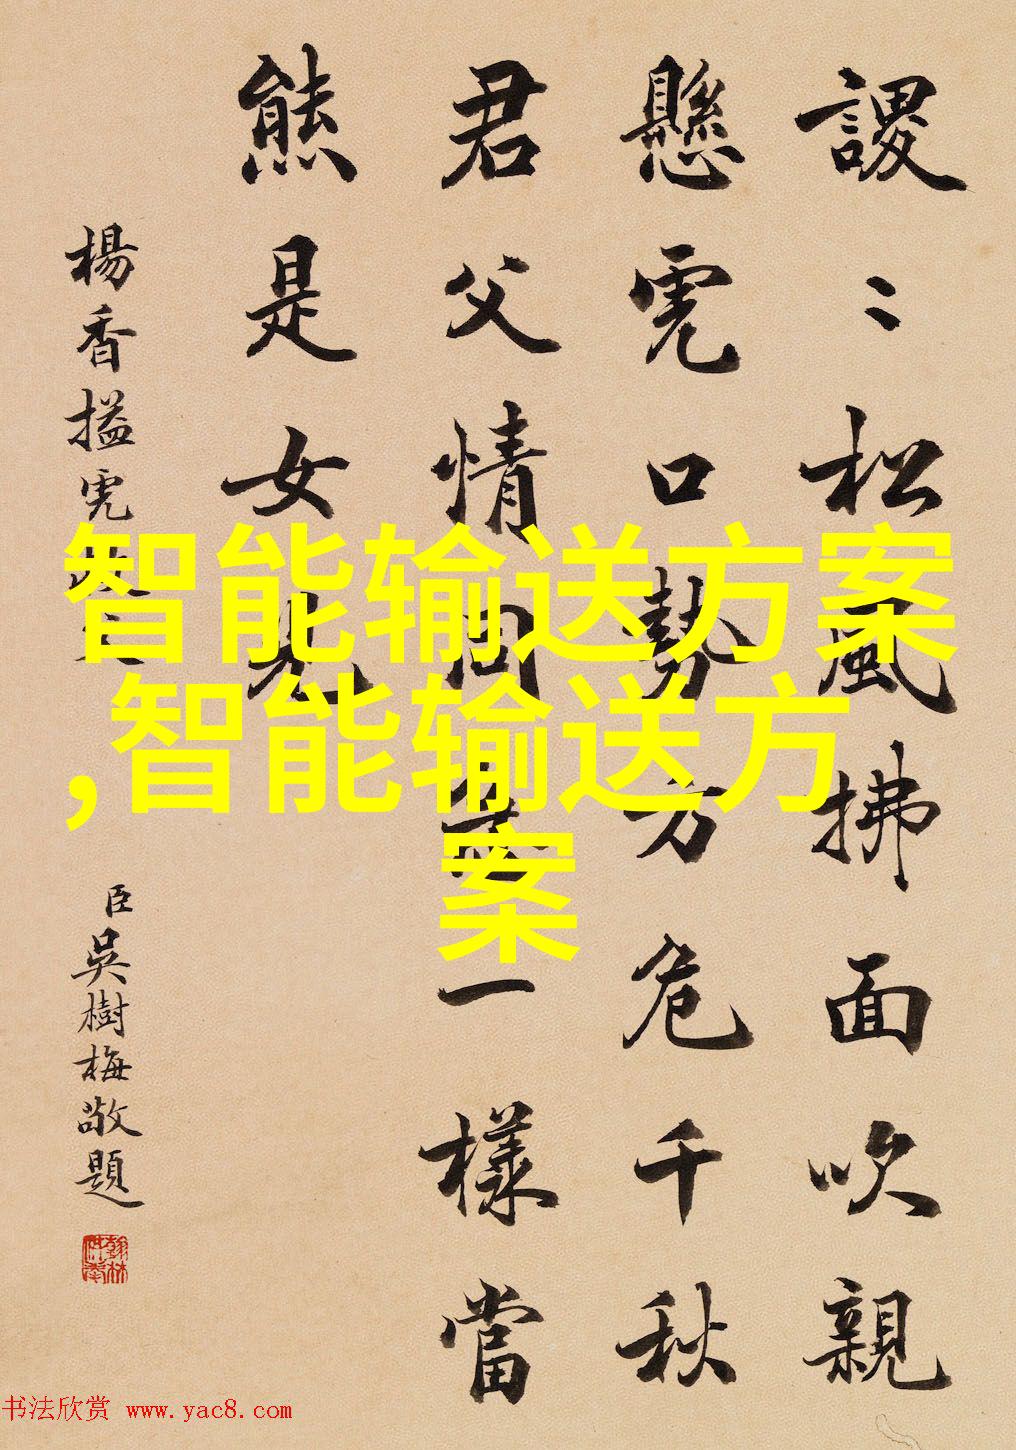 謖〻松風拂面吹親
懸虎口勢方危千秋
君父情同一樣當
熊是女兒
楊香搤虎救父
臣吳樹梅敬題
翰林供奉
智能输送方案
,智能输送方
案
书法欣赏 www.yac8.com